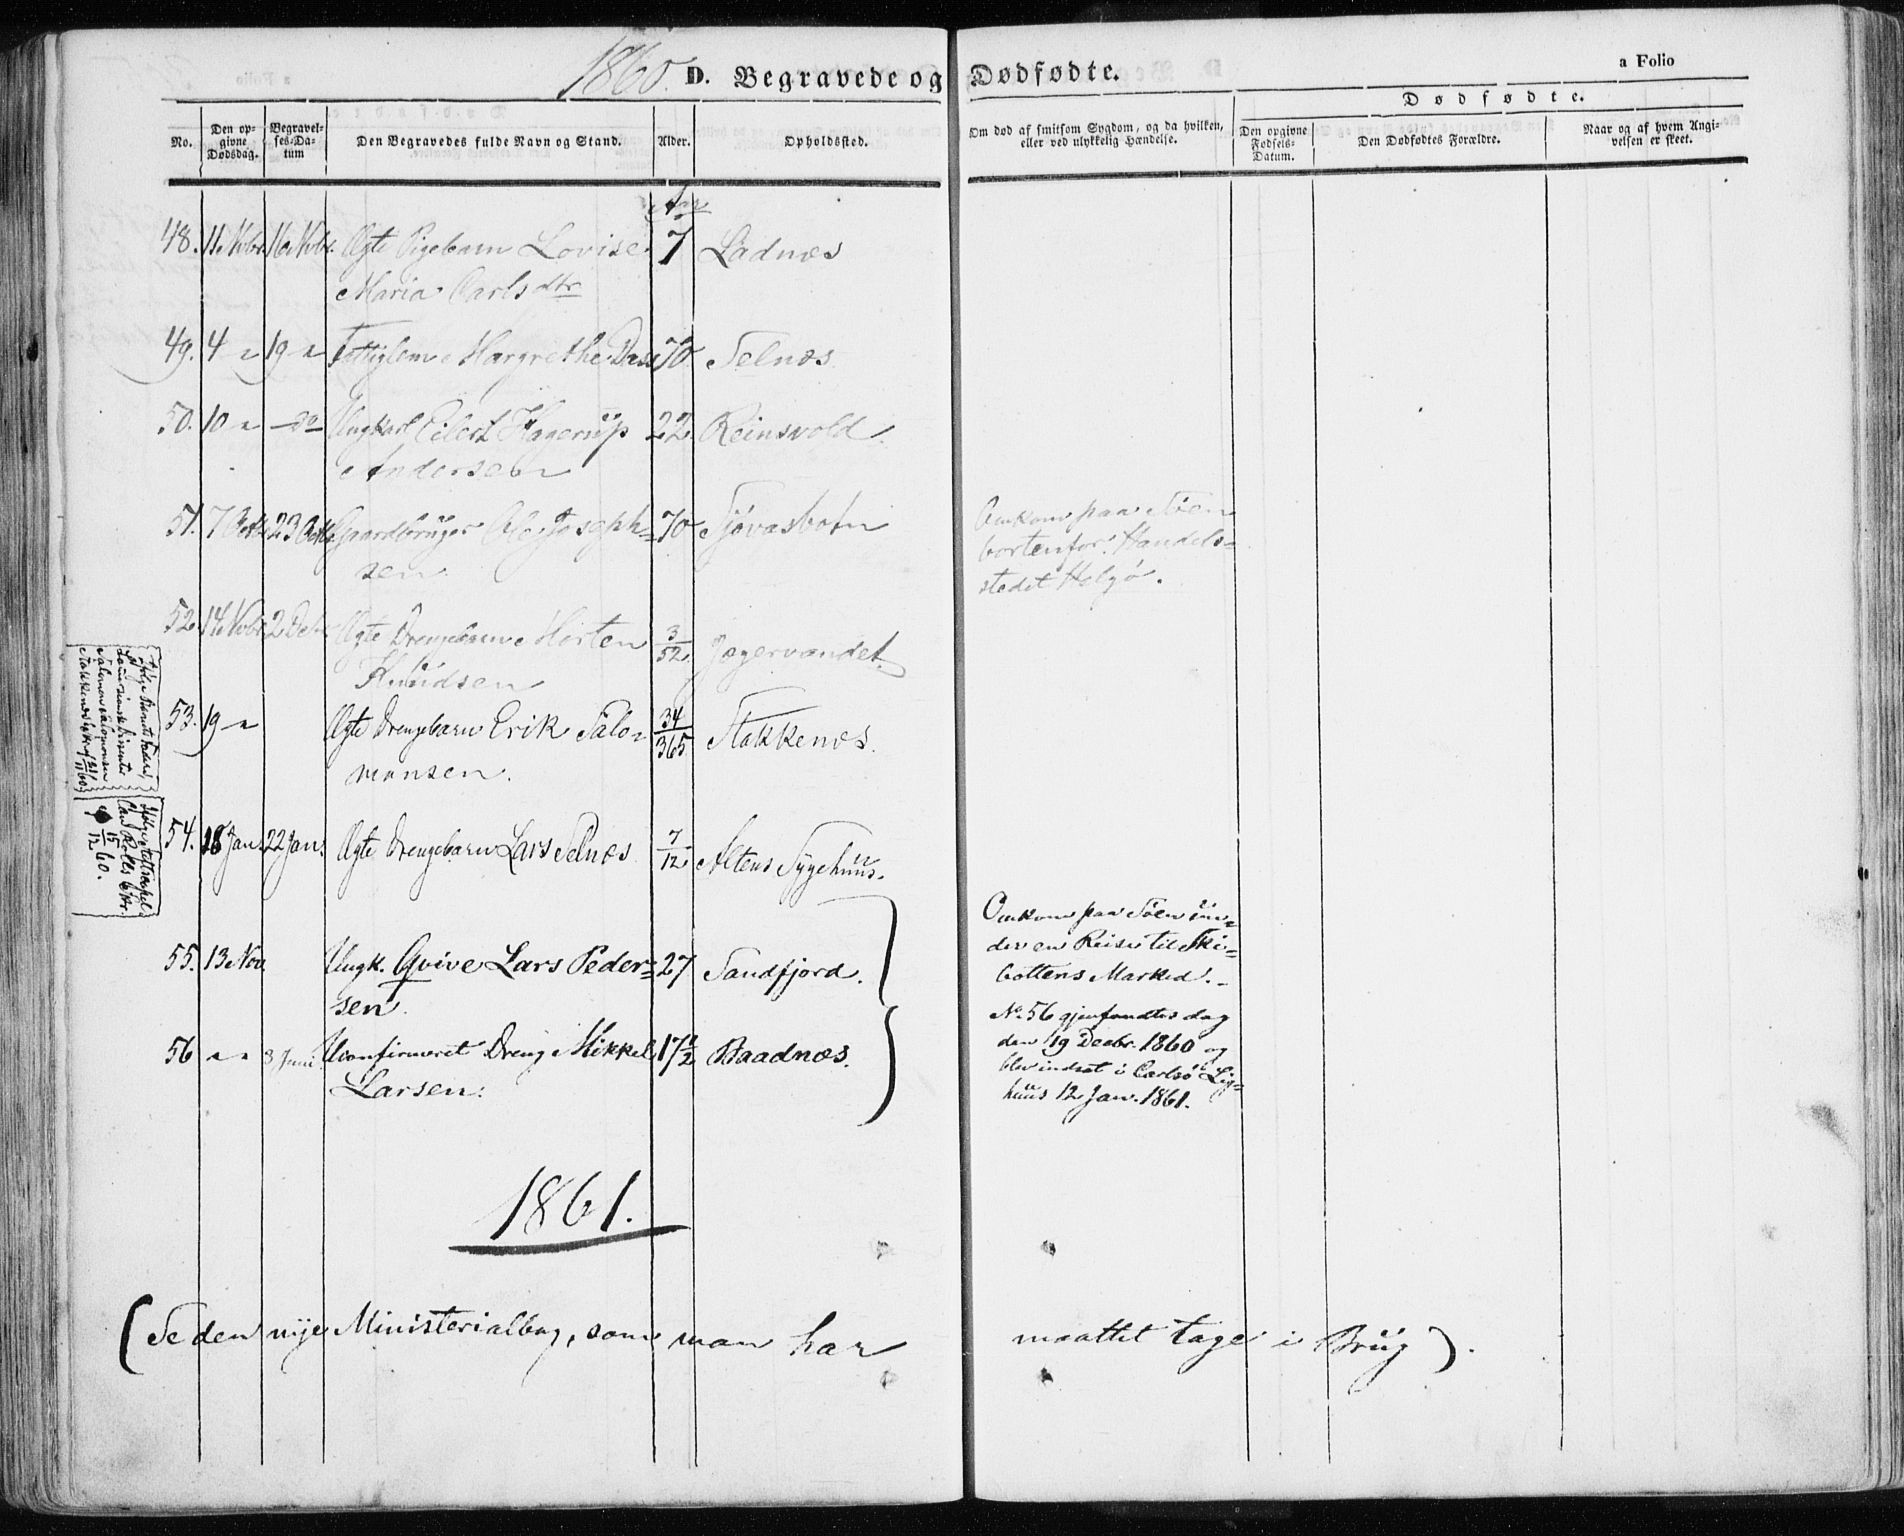 1860. D. Begravede og Dødfødte.
a Folio
No.
Den opgivne Dødsdag.
Begravelses-Datum
Den Begravedes fulde Navn og Stand.
Alder.
Opholdssted.
Om død af smitsom Sygdom, og da hvilken, eller ved ulykkelig Hændelse.
Dødfødte.
Den opgivne Fødsels-Datum.
Den Dødfødtes Forældre.
Naar og af hvem Angivelsen er skeet.
Aar
48. 11 Novbr 16 Novbr. Ægte Pigebarn Lovise 7 Ladnæs
Maria Carlsdtr
49. 4 " 19 " Fattiglem Margrethe 70 Selnæs
50. 10 " do Ungkarl Eilert Hagerup 22 Reinsvold.
Andersen
51. 7 Octb 23 Octb Gaardbruger Ole Joseph= 70 Sjøvasbotn
sen.
Omkom paa Søen
bortenfor Handels=
stedet Helgø.
52. 14 Novbr 2 Debr Ægte Drengebarn Morten 3/52 Jægervandet.
Knudsen
53. 19 " Ægte Drengebarn Erik Salo= 34/365 Stakkenæs.
monsen.
54. 18 Jan. 22 Jan. Ægte Drengebarn Lars Selnæs 7/12 Altens Sygehuus.
55. 13 Nov Ungk. Qvive Lars Peder= 27 Sandfjord.
sen.
Omkom paa Søen un=
der en Reise til Ski=
bottens Marked.
56 " " 3 Juni. Uconfirmeret Dreng Mikkel 17 1/2 Baadnæs.
Larsen.
No. 56 gjenfandtes dag
den 19 Decbr. 1860 og
blev indsat i Carlsø Lig=
huus 12 Jan. 1861.
1861.
(Se den nye Ministerialbog, som man har maattet tage i Brug).